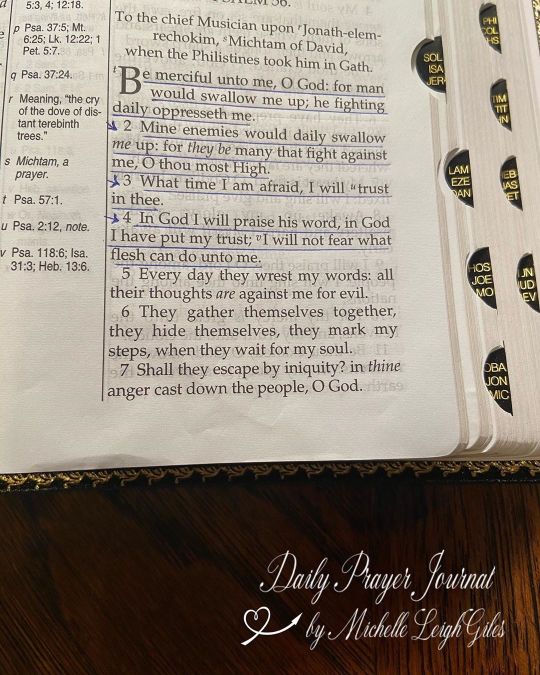 5:3, 4; 12:18.
p Psa. 37:5; Mt.
6:25; Lk. 12:22; 1
Pet. 5:7.
q Psa. 37:24.
r Meaning, "the cry
of the dove of dis-
tant terebinth
trees."
s Michtam, a
prayer.
t Psa. 57:1.
u Psa. 2:12, note.
v Psa. 118:6; Isa.
31:3; Heb. 13:6.
56.
To the chief Musician upon rJonath-elem-
rechokim, sMichtam of David,
when the Philistines took him in Gath.
tBe merciful unto me, O God: for man
would swallow me up; he fighting
daily oppresseth me.
2 Mine enemies would daily swallow
me up: for they be many that fight against
me, O thou most High.
3 What time I am afraid, I will utrust
in thee.
4 In God I will praise his word, in God
I have put my trust; vI will not fear what
flesh can do unto me.
5 Every day they wrest my words: all
their thoughts are against me for evil.
6 They gather themselves together,
they hide themselves, they mark my
steps, when they wait for my soul.
7 Shall they escape by iniquity? in thine
anger cast down the people, O God.
SOL
ISA
JER
LAM
EZE
DAN
HOS
JOE
MO
OBA
JON
MIC
PHI
COL
HS
TIM
TIT
HN
EB
JAS
ET
UN
UD
EV
Daily Prayer Journal
by Michelle Leigh Giles